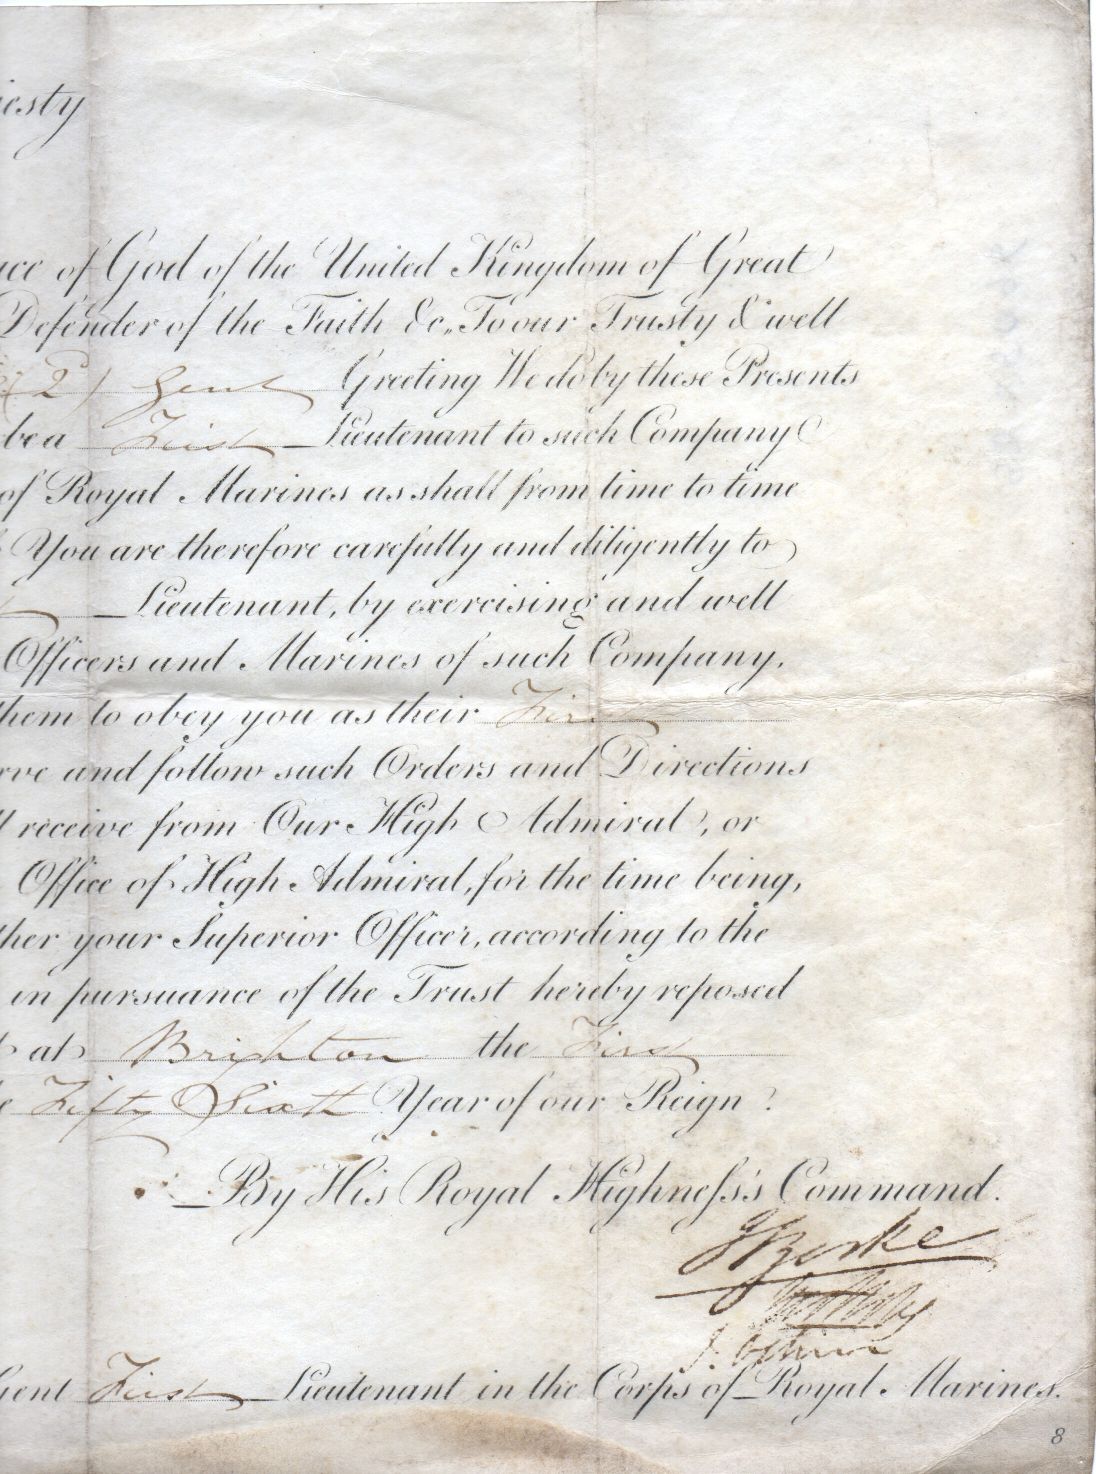 jesty
ace of God of the United Kingdom of Great
Defender of the Faith &c. To our Trusty & well
(2d) Gent Greeting We do by these Presents
be a First Lieutenant to such Company
of Royal Marines as shall from time to time
You are therefore carefully and diligently to
Lieutenant, by exercising and well
Officers and Marines of such Company,
them to obey you as their First
rve and follow such Orders and Directions
receive from Our High Admiral, or
Office of High Admiral, for the time being,
ther your Superior Officer, according to the
in pursuance of the Trust hereby reposed
at Brighton the First
Fifty Sixth Year of our Reign.
By His Royal Highness's Command.
J Yorke
J. Osborn
Gent First Lieutenant in the Corps of Royal Marines.
8